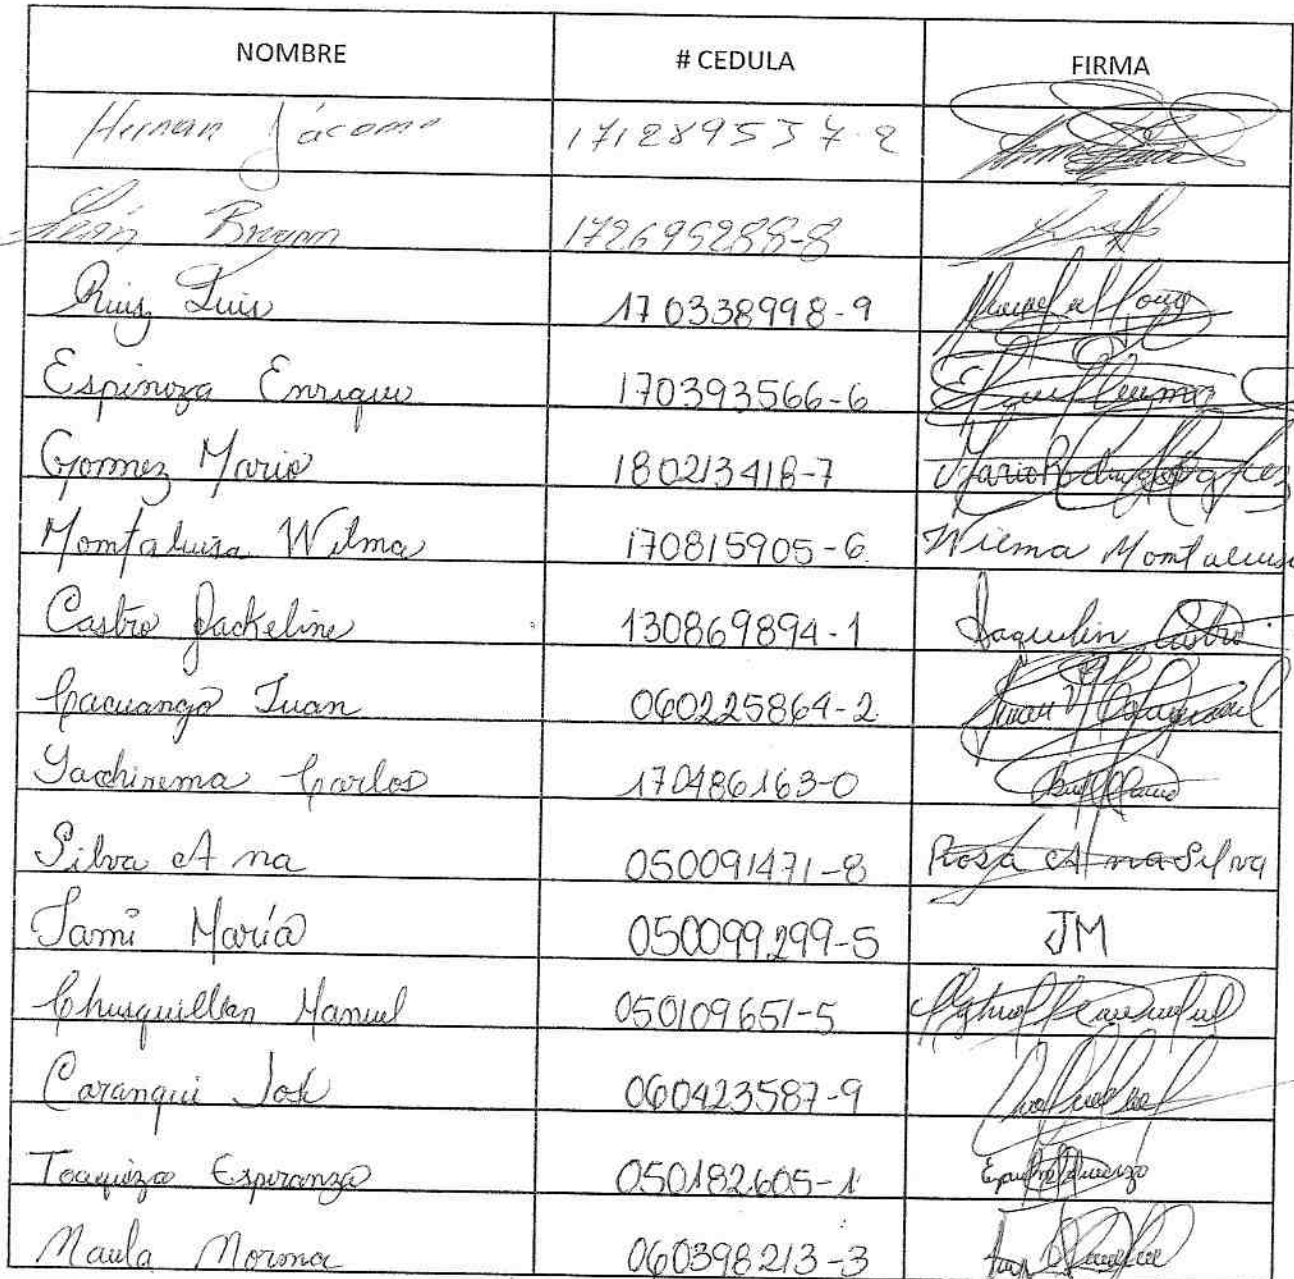 NOMBRE # CEDULA FIRMA
Hernan Jácome 171289557-2
Brayan 172699288-8
Ruiz Luis 170338998-9
Espinoza Enrique 170393566-6
Gomez Mario 180213418-7
Montaluisa Wilma 170815905-6 Wilma Montaluisa
Castro Jackeline 130869894-1 Jaquelin Castro
Cacuango Juan 060225864-2
Yachirema Carlos 170486163-0
Silva Ana 050091471-8 Rosa Ana Silva
Jami María 050099299-5 JM
Chusquillan Manuel 050109651-5
Caranqui José 060423587-9
Toaquiza Esperanza 050182605-1
Maula Norma 060398213-3